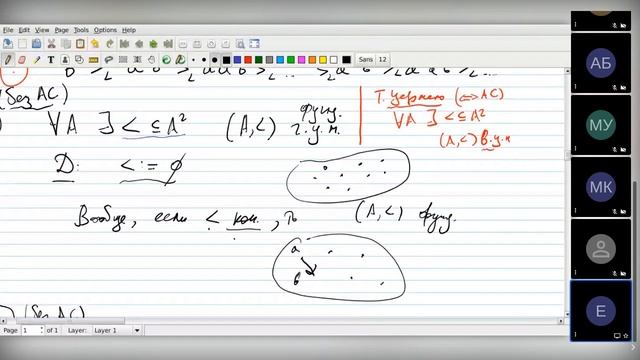 File Edit View Journal Page Tools Options Help
Sans 12
(без AC)
∀A ∃ < ⊆ A²
(A,<) фунд.
ч.у.м.
Т. Цермело (⇔ AC)
∀A ∃ < ⊆ A²
(A,<) в.у.м
D: < := ∅
Вообще, если < кон., то (A,<) фунд.
a
b
(без AC)
Page 1 of 1 Layer: Layer 1
АБ
МУ
МК
Е